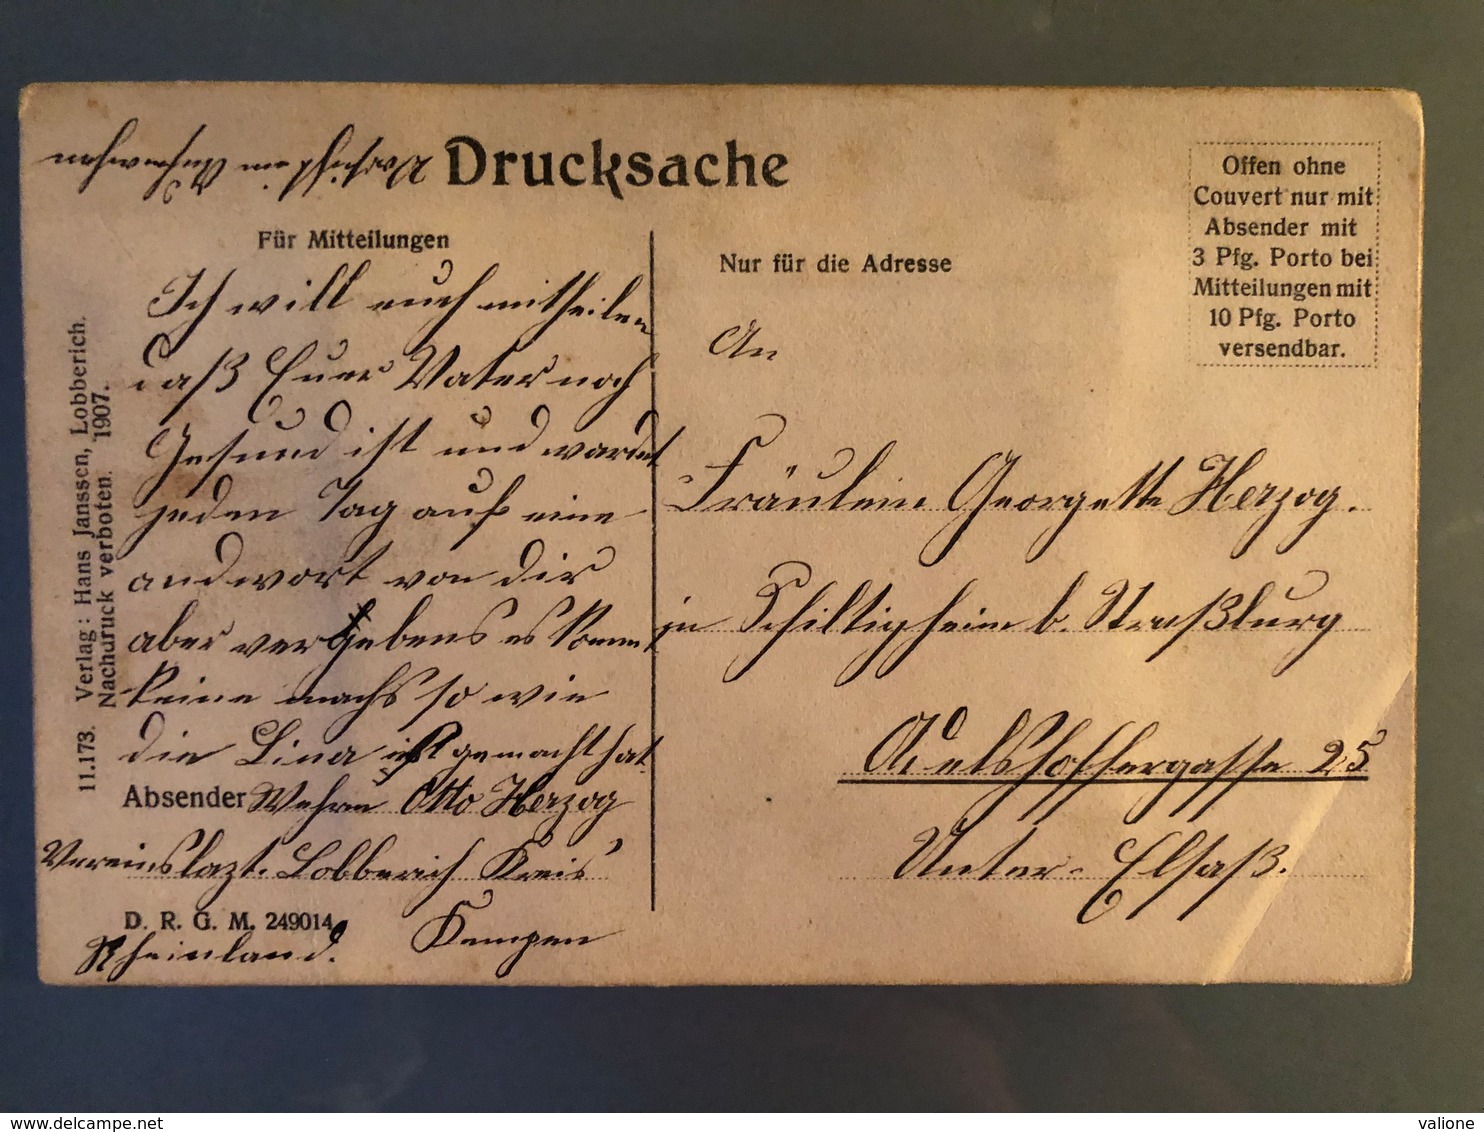 Vorsicht im Aufmachen
Drucksache
Offen ohne
Couvert nur mit
Absender mit
3 Pfg. Porto bei
Mitteilungen mit
10 Pfg. Porto
versendbar.
Für Mitteilungen
Ich will euch mittheilen
daß Euer Vater noch
Gesund ist und wardet
jeden Tag auf eine
andwort von dir
aber vergebens es kommt
keine machs so wie
die Lina gemacht hat
Absender Wehrm Otto Herzog
Vereinslazt. Lobberich Kreis
Kempen
D. R. G. M. 249014
Rheinland.
11.173. Verlag: Hans Janssen, Lobberich.
Nachdruck verboten. 1907.
Nur für die Adresse
An
Fräulein Georgette Herzog.
in Schiltigheim b. Straßburg
Adelshoffergasse 25
Unter-Elsaß.
delcampe.net
valione